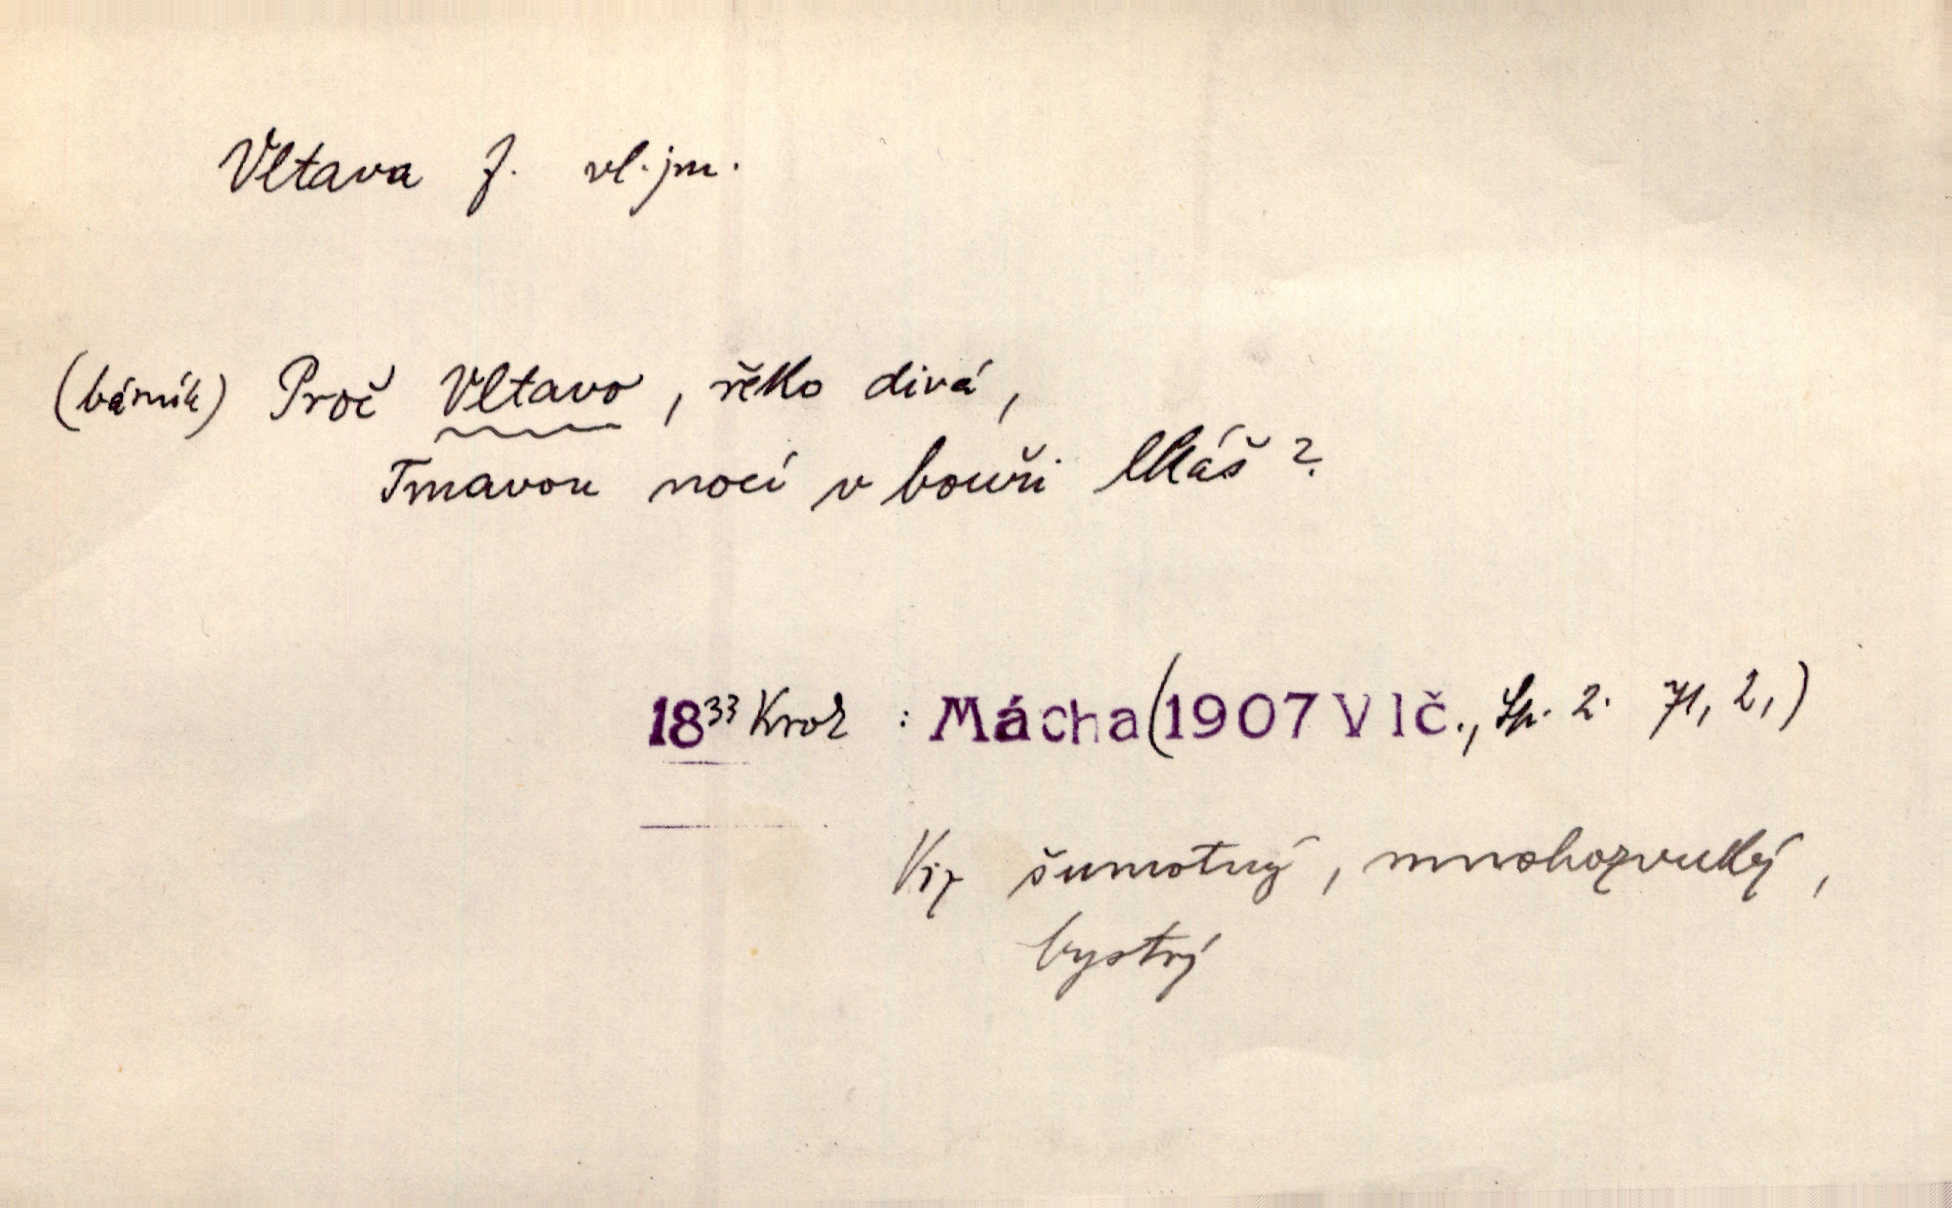 Vltava f. vl. jm.
(básník) Proč Vltavo, řěko divá,
Tmavou nocí v bouři lkáš?
1833 Krok : Mácha (1907 Vlč., Sp. 2. 71, 2,)
Viz šumotný, mnohozvuký,
bystrý